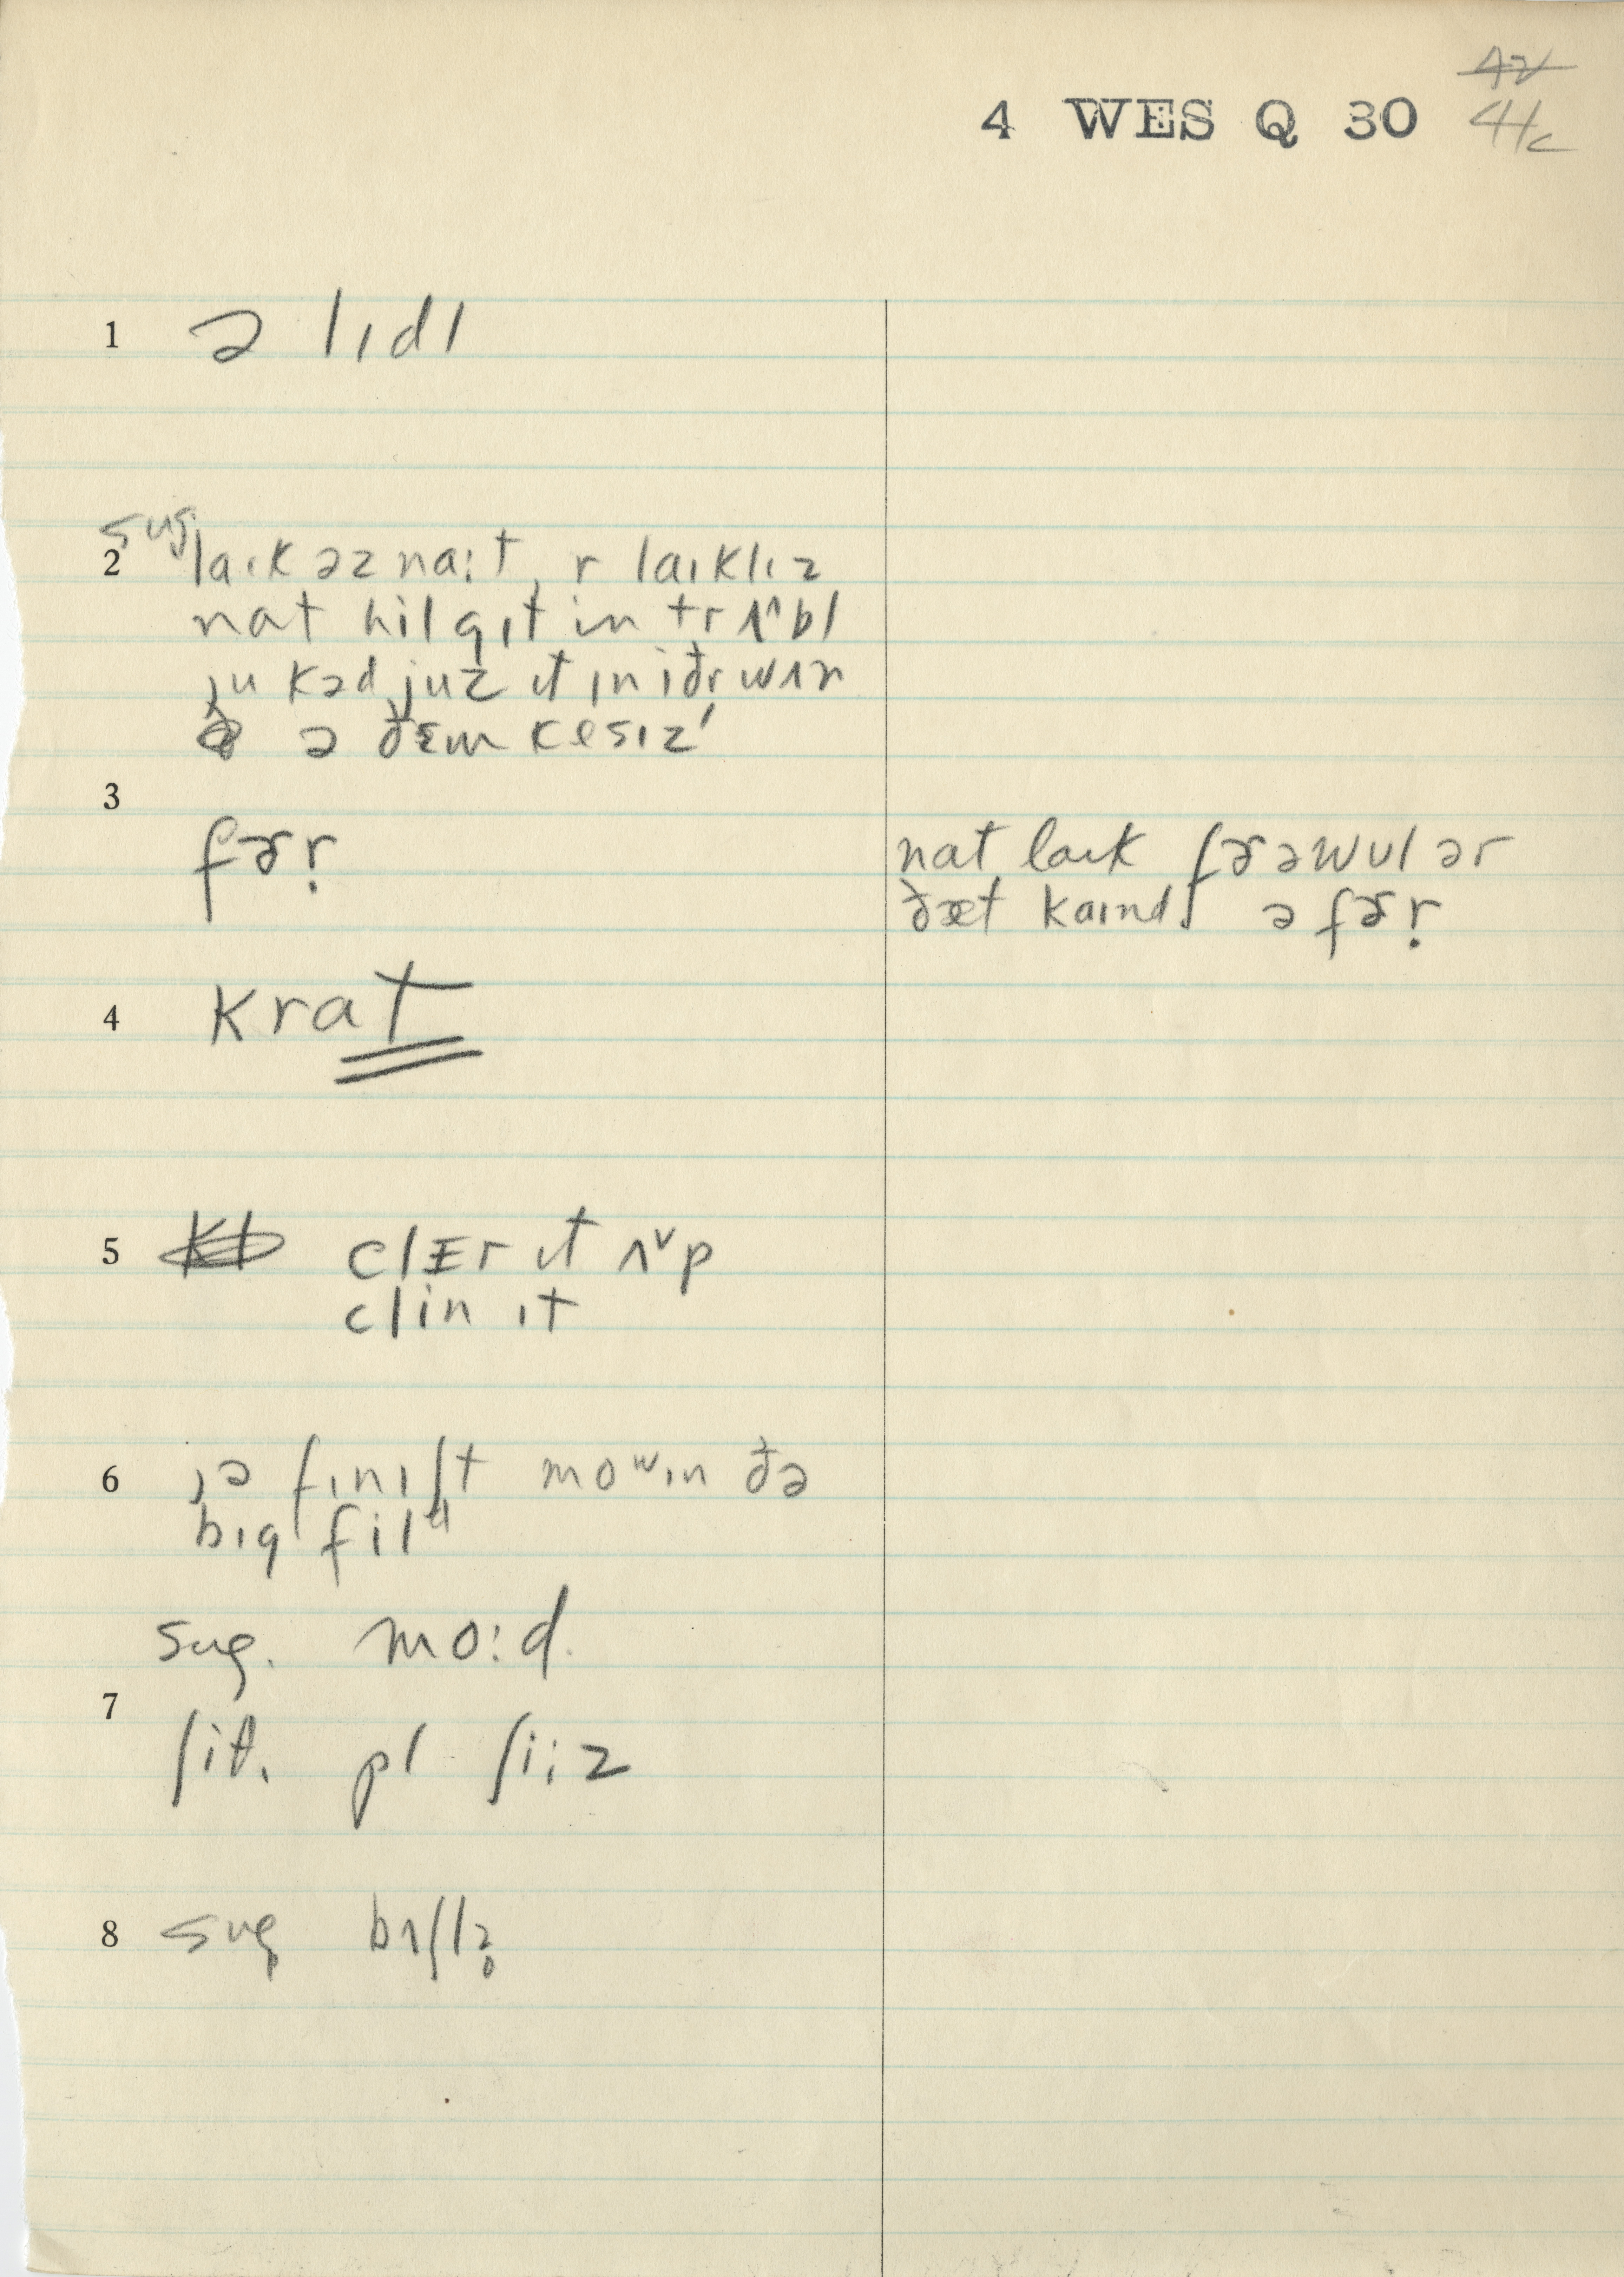 42
4 WES Q 30 41c
1 ə lɪdl
sug
2 laɪk əz naɪt, r laɪklɪz
nat hil gɪt in trʌ^bl
ju kəd juz ɪt ɪn iðr wʌn
ə ðɛm kesɪz'
3
fɚr̩ nat laɪk fɚəwʊl ər
ðæt kaɪnd ə fɚr̩
4 krat
5 clɛr ɪt ʌ˅p
clin ɪt
6 jə fɪnɪʃt moʷɪn ðə
bɪg filᵈ
sug. mo:d.
7
ʃiθ. pl ʃi:z
8 sug bʌʃlz̥